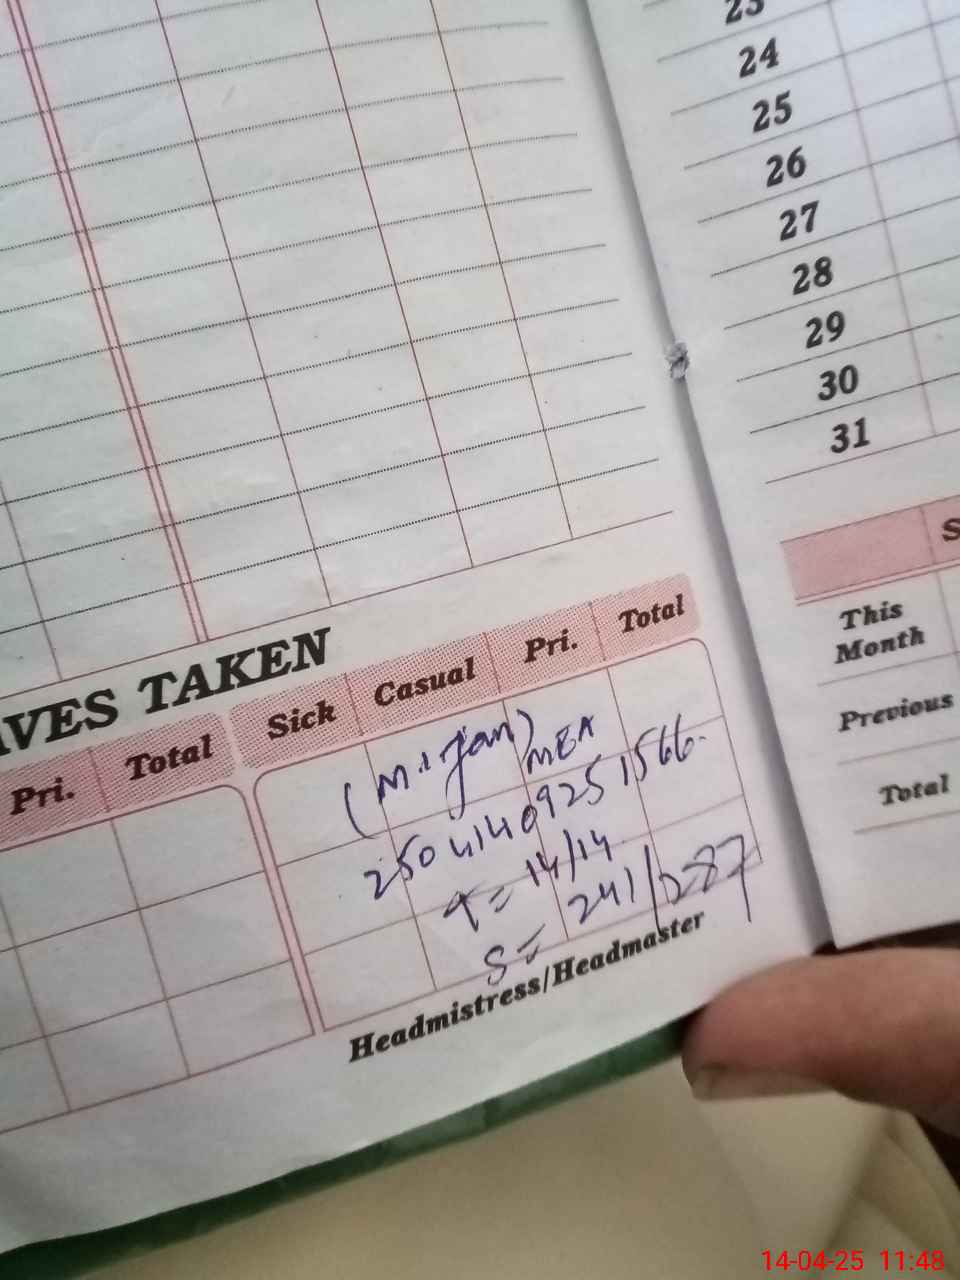 23
24
25
26
27
28
29
30
31
VES TAKEN
Pri. Total Sick Casual Pri. Total
(M. Irfan)
MEA
25041409251566.
T= 14/14
S= 241/287
Headmistress/Headmaster
This
Month
Previous
Total
14-04-25 11:48